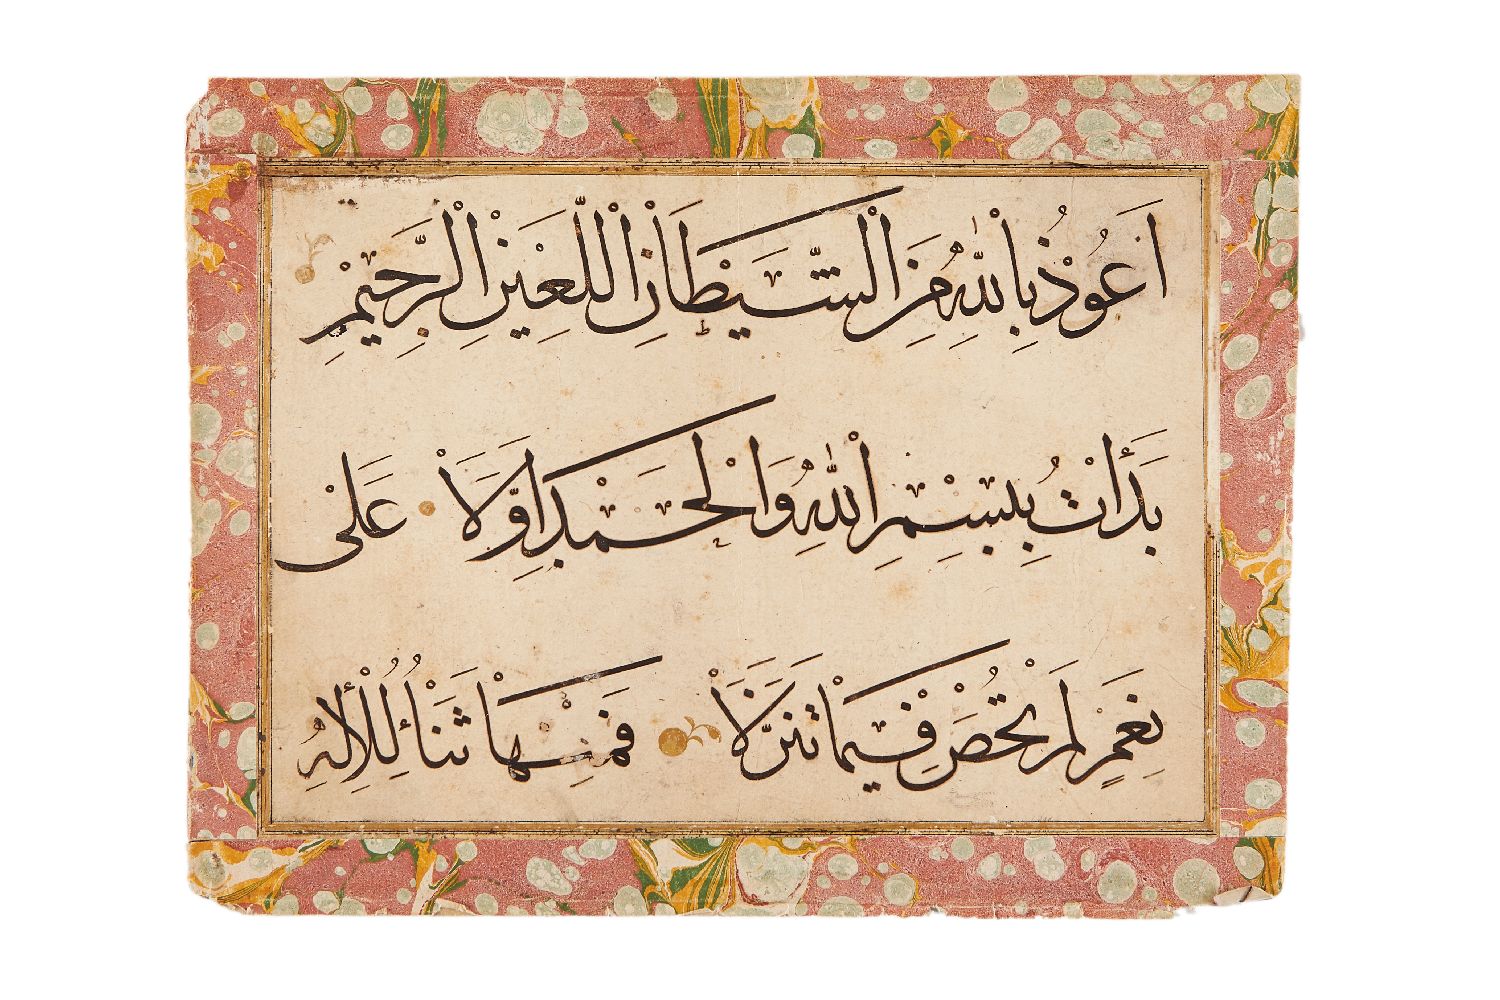 اَعُوذُ بِاللّٰهِ مِنَ الشَّيْطَانِ اللَّعِينِ الرَّجِيمِ
بَدَأْتُ بِبِسْمِ اللّٰهِ وَالْحَمْدِ اَوَّلَا عَلَى
نِعَمٍ لَمْ تُحْصَ فِيمَا تَنَزَّلَا فَمِنْهَا ثَنَاءُ لِلْاِلٰهِ